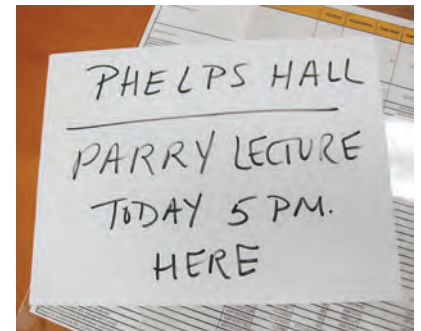 PHELPS HALL
PARRY LECTURE
TODAY 5 PM.
HERE